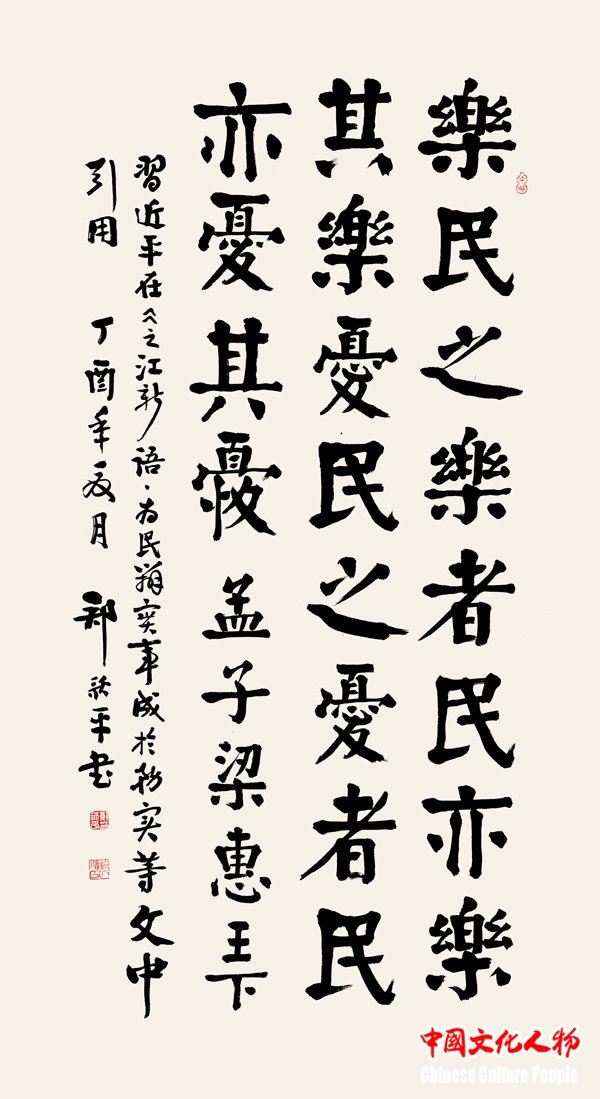 樂民之樂者民亦樂
其樂憂民之憂者民
亦憂其憂 孟子梁惠王下
習近平在《之江新語·为民辦实事成於務实等文中
引用 丁酉年夏月 鄭 平書
中國文化人物
Chinese Culture People